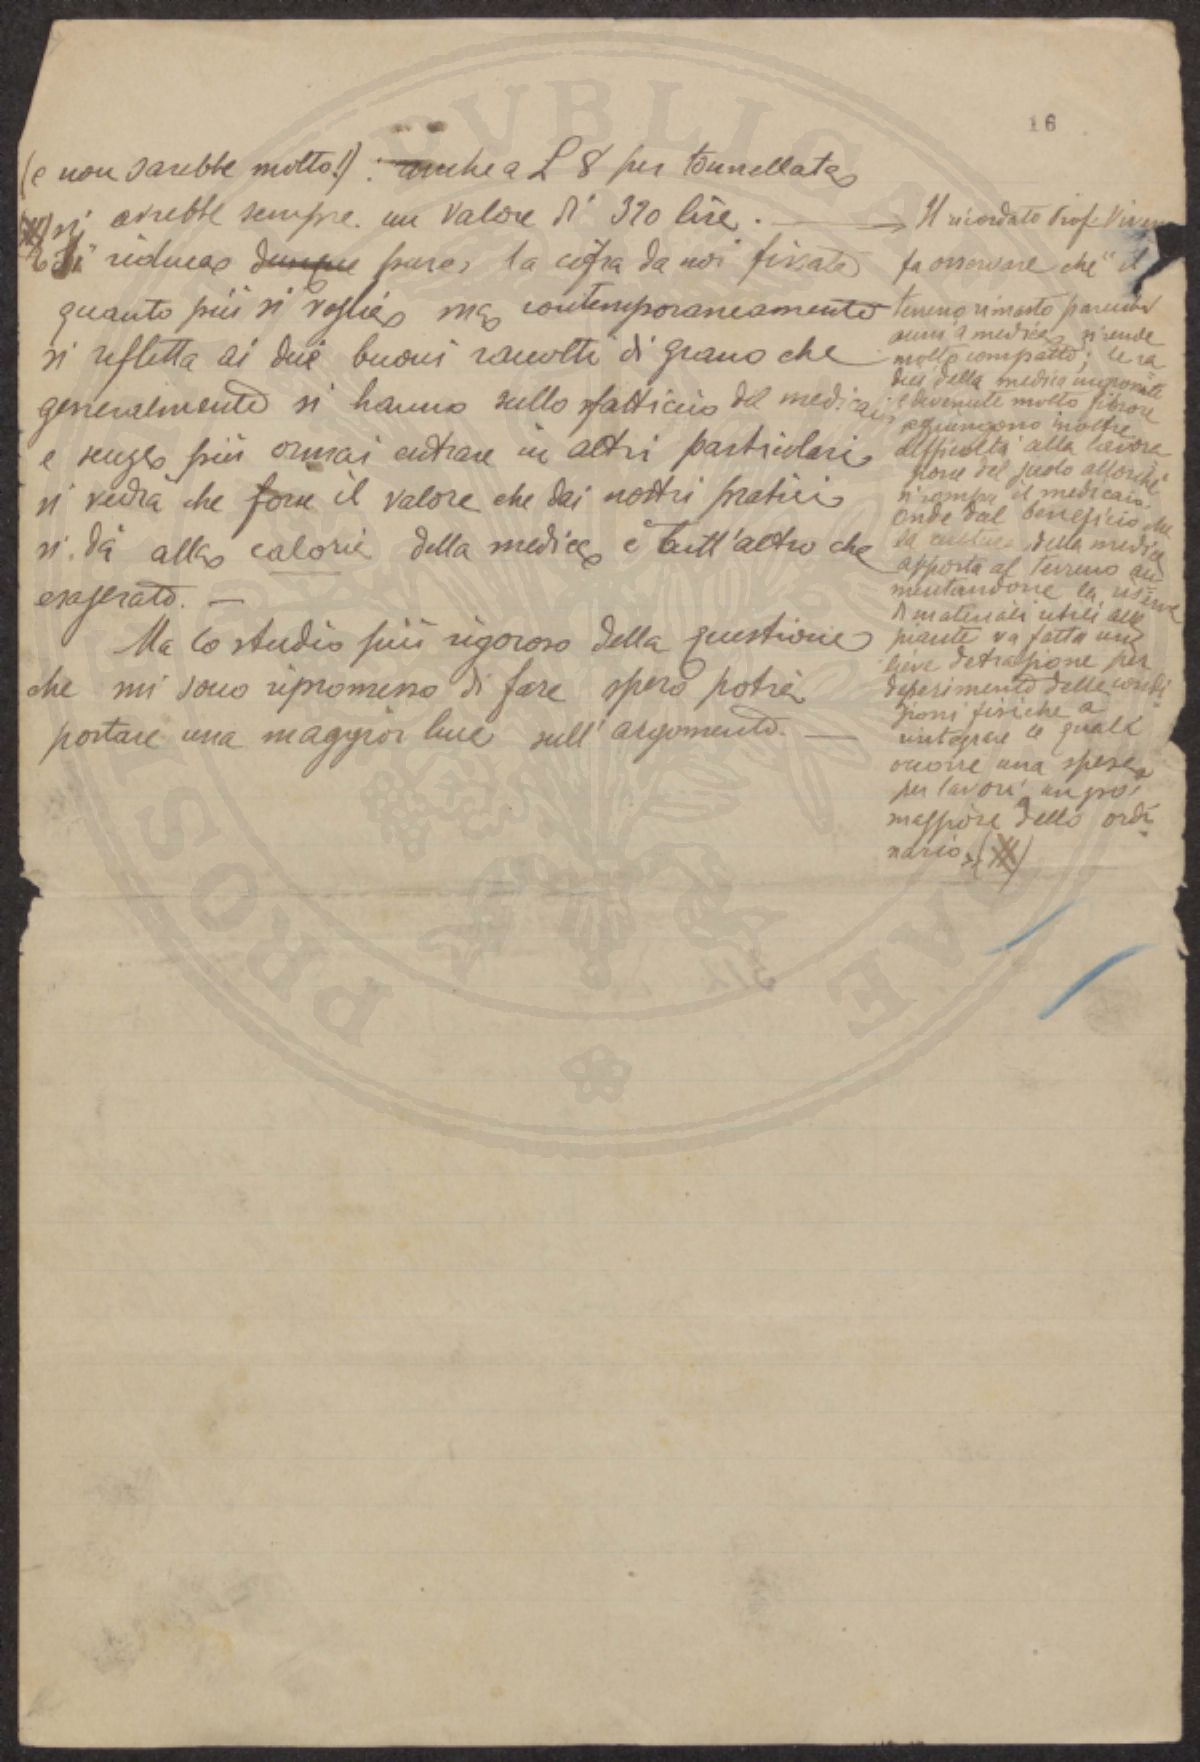 16
(e non sarebbe molto!): anche a L 8 per tonnellata
si avrebbe sempre un valore di 320 lire. —
Si riduca dunque pure la cifra da noi fissata
quanto più si voglia ma contemporaneamente
si refletta ai due buoni raccolti di grano che
generalmente si hanno sullo sfatticcio del medicaio
e senza più ormai entrare in altri particolari
si vedrà che forse il valore che dai nostri pratici
si dà alla caloria della medica è tutt'altro che
esagerato. —
Ma lo studio più rigoroso della questione
che mi sono ripromesso di fare spero potrà
portare una maggior luce sull'argomento. —
Il ricordato Prof.
fa osservare che "il
terreno rimasto parecchi
anni a medica si rende
molto compatto; le ra
dici della medica
e divenute molto fibrose
aggiungono inoltre
difficoltà alla lavora
zione del suolo allorchè
si rompa il medicaio.
Onde dal beneficio che
la cultura della medica
apporta al terreno au
mentandone la riserva
di materiali utili alle
piante va fatta una
lieve detrazione per
deperimento delle condi
zioni fisiche a
rintegrare le quali
occorre una spesa
per lavori un po'
maggiore dello ordi
nario»
PRO SALUTE PUBLICAE